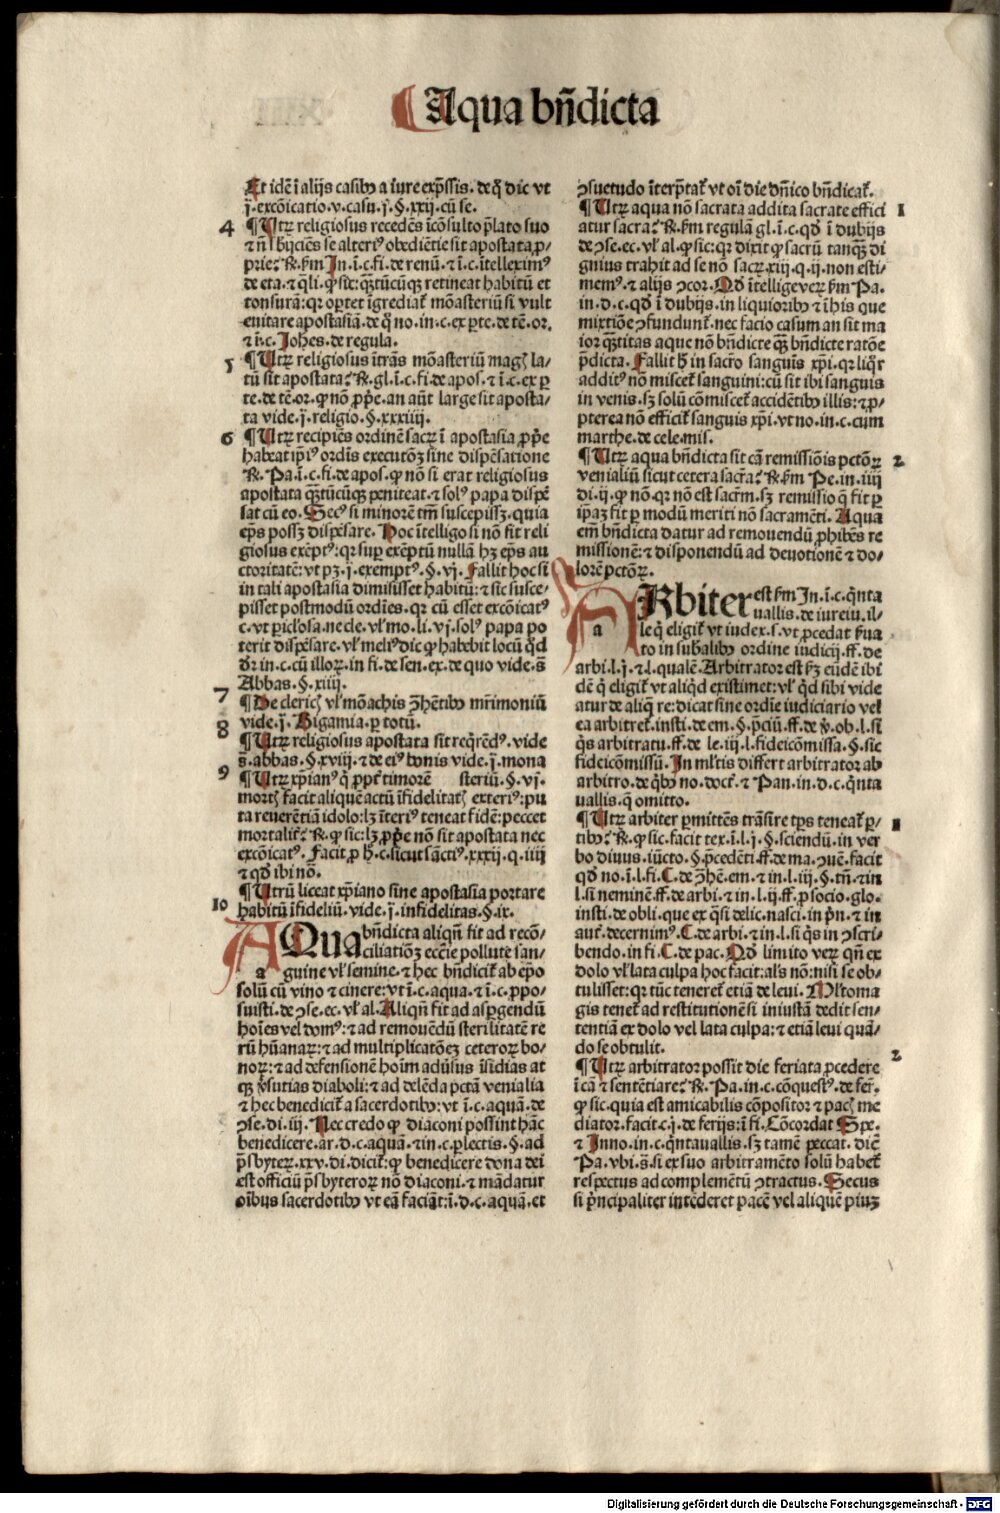 Aqua bn̄dicta
Et idē ī alijs casibꝰ a iure exp̄ssis. de q̄ dic vt
j̄. excōicatio. v. casu. j̄. §. xxij. cū se.
4 ¶ Utꝝ religiosus recedēs īcōsulto p̄lato suo
⁊ n̄ sbijciēs se alteriꝰ obediētie sit apostata ꝓ-
prie: R̄. ẜm In. ī. c. fi. de renū. ⁊ ī. c. ītelleximꝰ
de eta. ⁊ q̄li. ꝙ sic: qꝫtūcūqꝫ retineat habitū et
tonsurā: qꝛ oꝑtet īgrediat᷑ mōasteriū si vult
euitare apostasiā. de q̄ no. in. c. ex ꝑte. de tē. oꝛ.
⁊ ī. c. Johēs. de regula.
5 ¶ Utꝝ religiosus ītrās mōasteriū magꝭ la-
tū sit apostata: R̄. gl. ī. c. fi. de apos. ⁊ ī. c. ex ꝑ
te. de tē. oꝛ. ꝙ nō ꝓp̄e. an aūt large sit aposta-
ta vide. j̄. religio. §. xxxiiij.
6 ¶ Utꝝ recipiēs ordinē sacꝝ ī apostasia ꝓp̄e
habeat ip̄iꝰ ordīs executōꝫ sine dispēsatione
R̄. Pa. ī. c. fi. de apos. ꝙ nō si erat religiosus
apostata qꝫtūcūqꝫ peniteat. ⁊ solꝰ papa dispē
sat cū eo. Secꝰ si minorē tm̄ suscepissꝫ. quia
ep̄s possꝫ dispēsare. Hoc ītelligo si nō fit reli
giosus exēptꝰ: qꝛ suꝑ exēptū nullā hꝫ ep̄s au
ctoritatē: vt pꝫ. j̄. exemptꝰ. §. vj. Fallit hoc si
in tali apostasia dimisisset habitū: ⁊ sic susce-
pisset postmodū ordīes. qꝛ cū esset excōicatꝰ
c. vt ꝑicl'osa. ne cle. vl' mo. li. vj. solꝰ papa po
terit dispēsare. vl' meliꝰ dic ꝙ habebit locū q̄d
dr̄ in. c. cū illoꝝ. in fi. de sen. ex. de quo vide. s̄
Abbas. §. xiiij.
7 ¶ De clericꝭ vl' mōachis ꝯhētibꝰ mr̄imoniū
8 vide. j̄. Bigamia. ꝑ totū.
¶ Utꝝ religiosus apostata sit reqͥrēdꝰ. vide
s̄. abbas. §. xviij. ⁊ de eiꝰ bonis vide. j̄. mona
9 ¶ Utꝝ xp̄ianꝰ qͥ ꝓpt᷑ timorē steriū. §. vj.
mortꝭ facit aliquē actū īfidelitatꝭ exteriꝰ: pu
ta reuerētiā idolo: lꝫ īteriꝰ teneat fidē: peccet
mortalit᷑: R̄. ꝙ sic: lꝫ ꝓp̄e nō sit apostata nec
excōicatꝰ. Facit ꝓ h̄. c. sicut sācti. xxxij. q. iiij
⁊ qd̄ ibi nō.
10 ¶ Utrū liceat xp̄iano sine apostasia portare
habitū īfideliū. vide. j̄. infidelitas. §. ix.
AQua bn̄dicta aliqn̄ fit ad recō-
ciliatiōꝫ ecc̄ie pollute san-
a guine vl' semine. ⁊ hec bn̄dicit᷑ ab ep̄o
solū cū vino ⁊ cinere: vt ī. c. aqua. ⁊ ī. c. ꝓpo-
suisti. de ꝯse. ec. vl' al. Aliqn̄ fit ad asꝑgendū
hoīes vel domꝰ: ⁊ ad remouēdū sterilitatē re
rū hūanaꝝ: ⁊ ad multiplicatōeꝫ ceteroꝝ bo-
noꝝ: ⁊ ad defensionē hoīm aduīsus īsidias at
qꝫ v̄sutias diaboli: ⁊ ad delēda pctā venialia
⁊ hec benedicit᷑ a sacerdotibꝰ: vt ī. c. aquā. de
ꝯse. di. iij. Nec credo ꝙ diaconi possint hāc
benedicere. ar. d. c. aquā. ⁊ in. c. ꝑlectis. §. ad
p̄sbyteꝝ. xxv. di. dicit᷑: ꝙ benedicere dona dei
est officiū p̄sbyteroꝝ nō diaconi. ⁊ mādatur
oībus sacerdotibꝰ vt eā faciāt: ī. d. c. aquā. et
ꝯsuetudo īterp̄tat᷑ vt oī die dn̄ico bn̄dicat᷑.
¶ Utꝝ aqua nō sacrata addita sacrate effici 1
atur sacra: R̄. ẜm regulā gl. ī. c. qd̄ ī dubijs
de ꝯse. ec. vl' al. ꝙ sic: qꝛ dixit ꝙ sacrū tanqꝫ di
gnius trahit ad se nō sacꝝ. xiij. q. ij. non esti-
memꝰ. ⁊ alijs ꝯcoꝛ. Qd̄ ītellige veꝝ ẜm Pa.
in. d. c. qd̄ ī dubijs. in liquioribꝰ ⁊ ī his que
mixtiōe ꝯfundunt᷑. nec facio casum an sit ma
ior qꝫtitas aque nō bn̄dicte qꝫ bn̄dicte ratōe
p̄dicta. Fallit h̄ in sacro sanguīs xp̄i. qꝛ liqͦr
additꝰ nō miscet᷑ sanguini: cū sit ibi sanguis
in venis. sꝫ solū cōmiscet᷑ accidētibꝰ illis: ⁊ ꝓ-
pterea nō efficit᷑ sanguis xp̄i. vt no. in. c. cum
marthe. de cele. mis.
¶ Utꝝ aqua bn̄dicta sit cā remissiōis pctōꝝ 2
venialiū sicut cetera sacr̄a: R̄. ẜm Pe. in. iiij
di. ij. ꝙ nō. qꝛ nō est sacrm̄. sꝫ remissio q̄ fit ꝑ
ip̄aꝫ fit ꝑ modū meriti nō sacramēti. Aqua
em̄ bn̄dicta datur ad remouendū ꝓhibēs re
missionē: ⁊ disponendū ad deuotionē ⁊ do-
lorē pctōꝝ.
ARbiter est ẜm In. ī. c. qͥnta
uallis. de iureiu. il-
a le qͥ eligit᷑ vt iudex. s. vt ꝓcedat ẜua
to in subālibꝰ ordine iudicij. ff. de
arbi. l. j. ⁊ l. qualē. Arbitrator est ẜꝫ eūdē ibi
dē qͥ eligit᷑ vt aliqͥd existimet: vl' qͥd sibi vide
atur de aliq̄ re: dicat sine ordīe iudiciario vel
ea arbitret᷑. insti. de em. §. p̄ciū. ff. de v̄. ob. l. si
qͥs arbitratu. ff. de le. iij. l. fideicōmissa. §. sic
fideicōmissū. In ml'tis differt arbitrator ab
arbitro. de qͥbꝰ no. doct᷑. ⁊ Pan. in. d. c. qͥnta
uallis. q̄ omitto.
¶ Utꝝ arbiter ꝑmittēs trāsire tp̄s teneat᷑ ꝑ- 1
tibꝰ: R̄. ꝙ sic. facit tex. ī. l. j. §. sciendū. in ver
bo diuus. iūcto. §. p̄cedēti. ff. de ma. ꝯuē. facit
qd̄ no. ī. l. fi. C. de ꝯhē. em. ⁊ in. l. iij. §. tn̄. ⁊ in
l. si neminē. ff. de arbi. ⁊ in. l. ij. ff. ꝓ socio. glo.
insti. de obli. que ex q̄si delic. nasci. in p̄n. ⁊ in
aut᷑. decernimꝰ. C. de arbi. ⁊ in. l. si qͥs in ꝯscri-
bendo. in fi. C. de pac. Qd̄ limito veꝝ qn̄ ex
dolo vl' lata culpa hoc facit: al's nō: nisi se ob-
tulisset: qꝛ tūc teneret᷑ etiā de leui. Ml'toma
gis tenet᷑ ad restitutionē si iniustā dedit sen-
tentiā ex dolo vel lata culpa: ⁊ etiā leui quā-
do se obtulit. 2
¶ Utꝝ arbitrator possit die feriata ꝓcedere
ī cā ⁊ sentētiare: R̄. Pa. in. c. cōquestꝰ. de fer᷑.
ꝙ sic. quia est amicabilis cōpositor ⁊ pacꝭ me
diator. facit. c. j. de ferijs: ī fi. Cōcordat Spe.
⁊ Inno. in. c. qͥntauallis. sꝫ tamē peccat. diē
Pa. vbi. s̄. si ex suo arbitramēto solū habet᷑
respectus ad complemētū ꝯtractus. Secus
si pͥncipaliter intēderet pacē vel aliquē piuꝫ
Digitalisierung gefördert durch die Deutsche Forschungsgemeinschaft - DFG